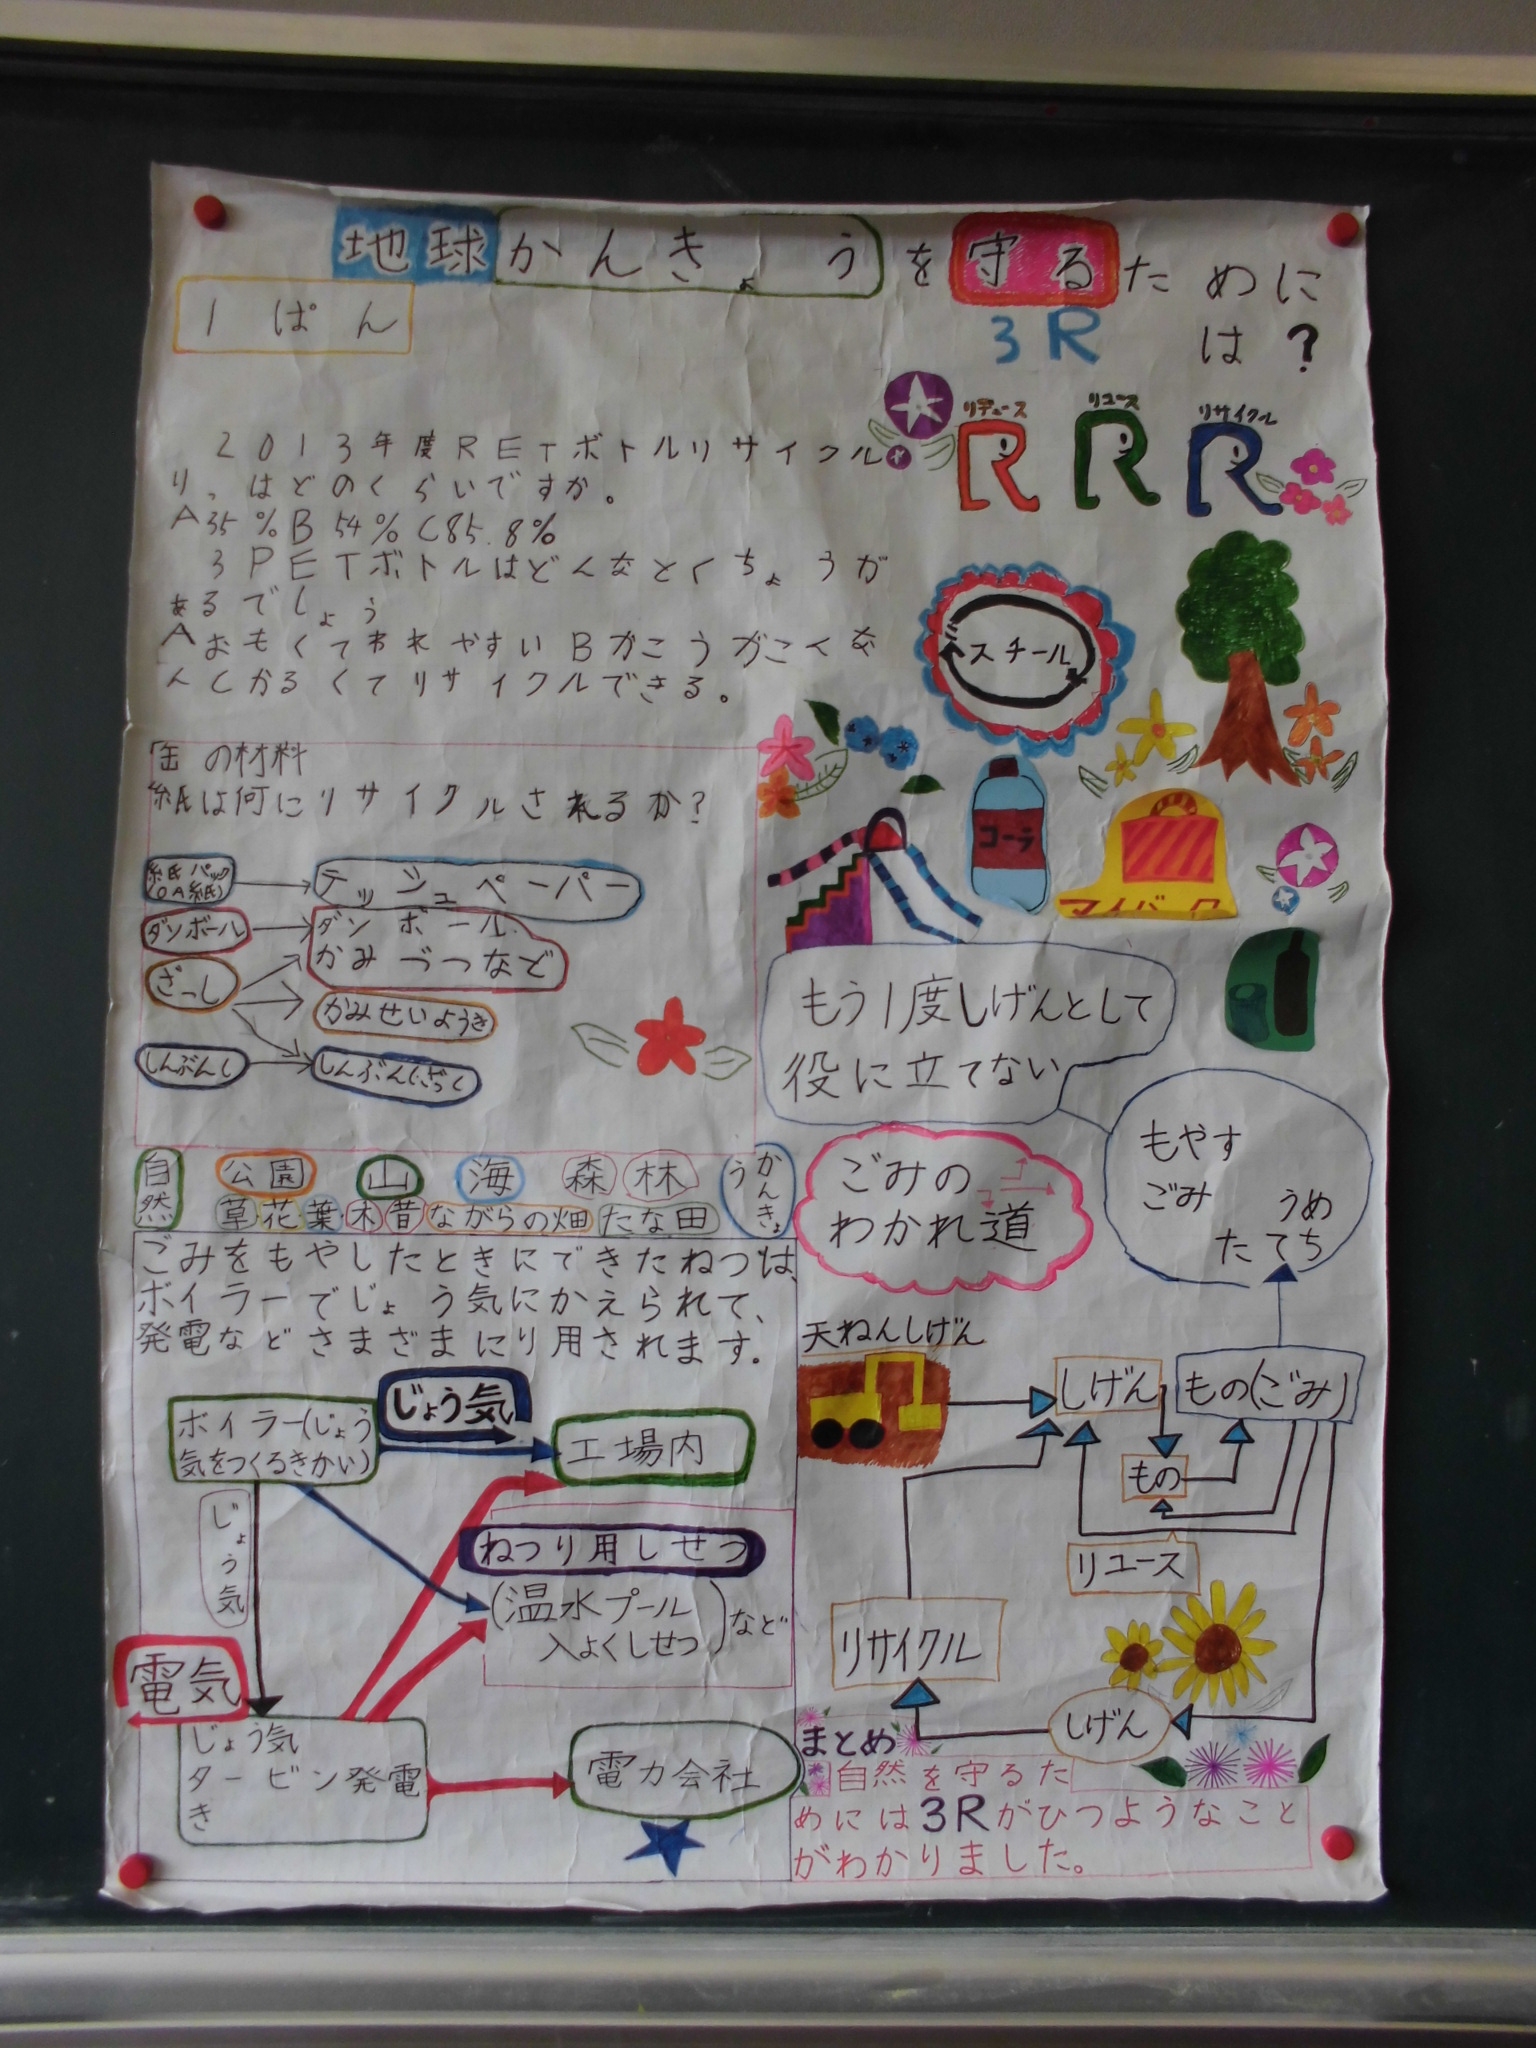 地球かんきょうを守るために
は?
1ぱん
3R
リデュース
リユース
リサイクル
R R R
2013年度RETボトルリサイクル
りっはどのくらいですか。
A35%B54%C85.8%
3PETボトルはどんなとくちょうが
あるでしょう
Aおもくてわれやすい Bかこうがこんな
んCかるくてリサイクルできる。
スチール
コーラ
マイバック
缶の材料
紙は何にリサイクルされるか?
紙パック
(OA紙)
テッシュペーパー
ダンボール
ダンボール、
かみづつなど
ざっし
かみせいようき
しんぶんし
しんぶんしざっし
もう1度しげんとして
役に立てない
もやす
ごみ
うめ
たてち
ごみの
わかれ道
自然
公園
山
海
森
林
かんきょう
草花葉木昔ながらの畑たな田
ごみをもやしたときにできたねつは、
ボイラーでじょう気にかえられて、
発電などさまざまにり用されます。
ボイラー(じょう
気をつくるきかい)
じょう気
工場内
じょう気
ねつり用しせつ
(温水プール
入よくしせつ)など
電気
じょう気
タービン発電
き
電力会社
天ねんしげん
しげん
もの(ごみ)
もの
リユース
リサイクル
しげん
まとめ
自然を守るた
めには3Rがひつようなこと
がわかりました。